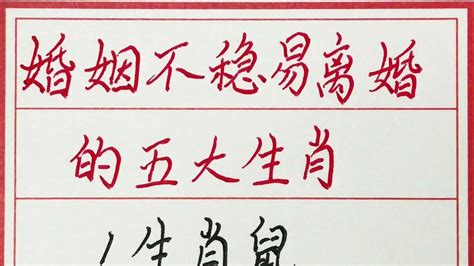 婚姻不稳易离婚
的五大生肖
1生肖鼠